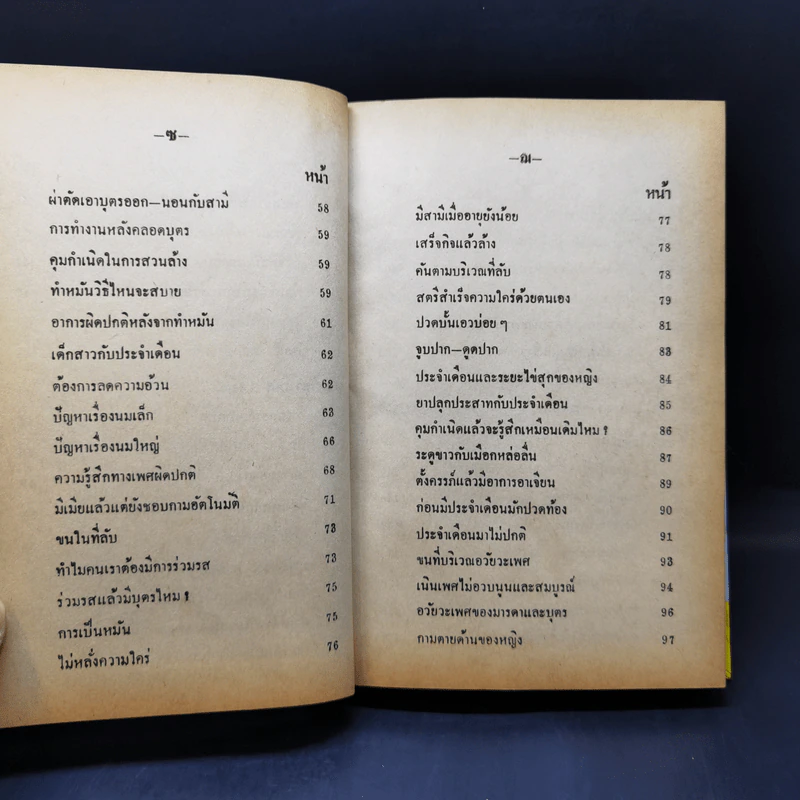 —ซ—
หน้า
ผ่าตัดเอาบุตรออก—นอนกับสามี 58
การทำงานหลังคลอดบุตร 59
คุมกำเนิดในการสวนล้าง 59
ทำหมันวิธีไหนจะสบาย 59
อาการผิดปกติหลังจากทำหมัน 61
เด็กสาวกับประจำเดือน 62
ต้องการลดความอ้วน 62
ปัญหาเรื่องนมเล็ก 63
ปัญหาเรื่องนมใหญ่ 66
ความรู้สึกทางเพศผิดปกติ 68
มีเมียแล้วแต่ยังชอบกามอัตโนมัติ 71
ขนในที่ลับ 73
ทำไมคนเราต้องมีการร่วมรส 73
ร่วมรสแล้วมีบุตรไหม ? 75
การเป็นหมัน 75
ไม่หลั่งความใคร่ 76
—ฌ—
หน้า
มีสามีเมื่ออายุยังน้อย 77
เสร็จกิจแล้วล้าง 78
คันตามบริเวณที่ลับ 78
สตรีสำเร็จความใคร่ด้วยตนเอง 79
ปวดบั้นเอวบ่อย ๆ 81
จูบปาก—ดูดปาก 83
ประจำเดือนและระยะไข่สุกของหญิง 84
ยาปลุกประสาทกับประจำเดือน 85
คุมกำเนิดแล้วจะรู้สึกเหมือนเดิมไหม ? 86
ระดูขาวกับเมือกหล่อลื่น 87
ตั้งครรภ์แล้วมีอาการอาเจียน 89
ก่อนมีประจำเดือนมักปวดท้อง 90
ประจำเดือนมาไม่ปกติ 91
ขนที่บริเวณอวัยวะเพศ 93
เนินเพศไม่อวบนูนและสมบูรณ์ 94
อวัยวะเพศของมารดาและบุตร 96
กามตายด้านของหญิง 97